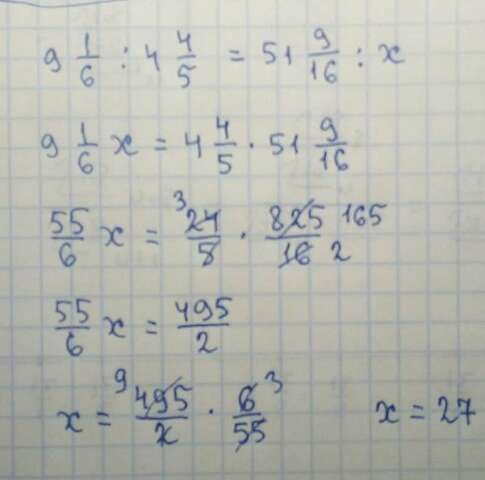 9 1/6 : 4 4/5 = 51 9/16 : x
9 1/6 x = 4 4/5 · 51 9/16
55/6 x = ³24/5 · 825/16 165 2
55/6 x = 495/2
x = ⁹495/2 · 6/55 ³ x = 27